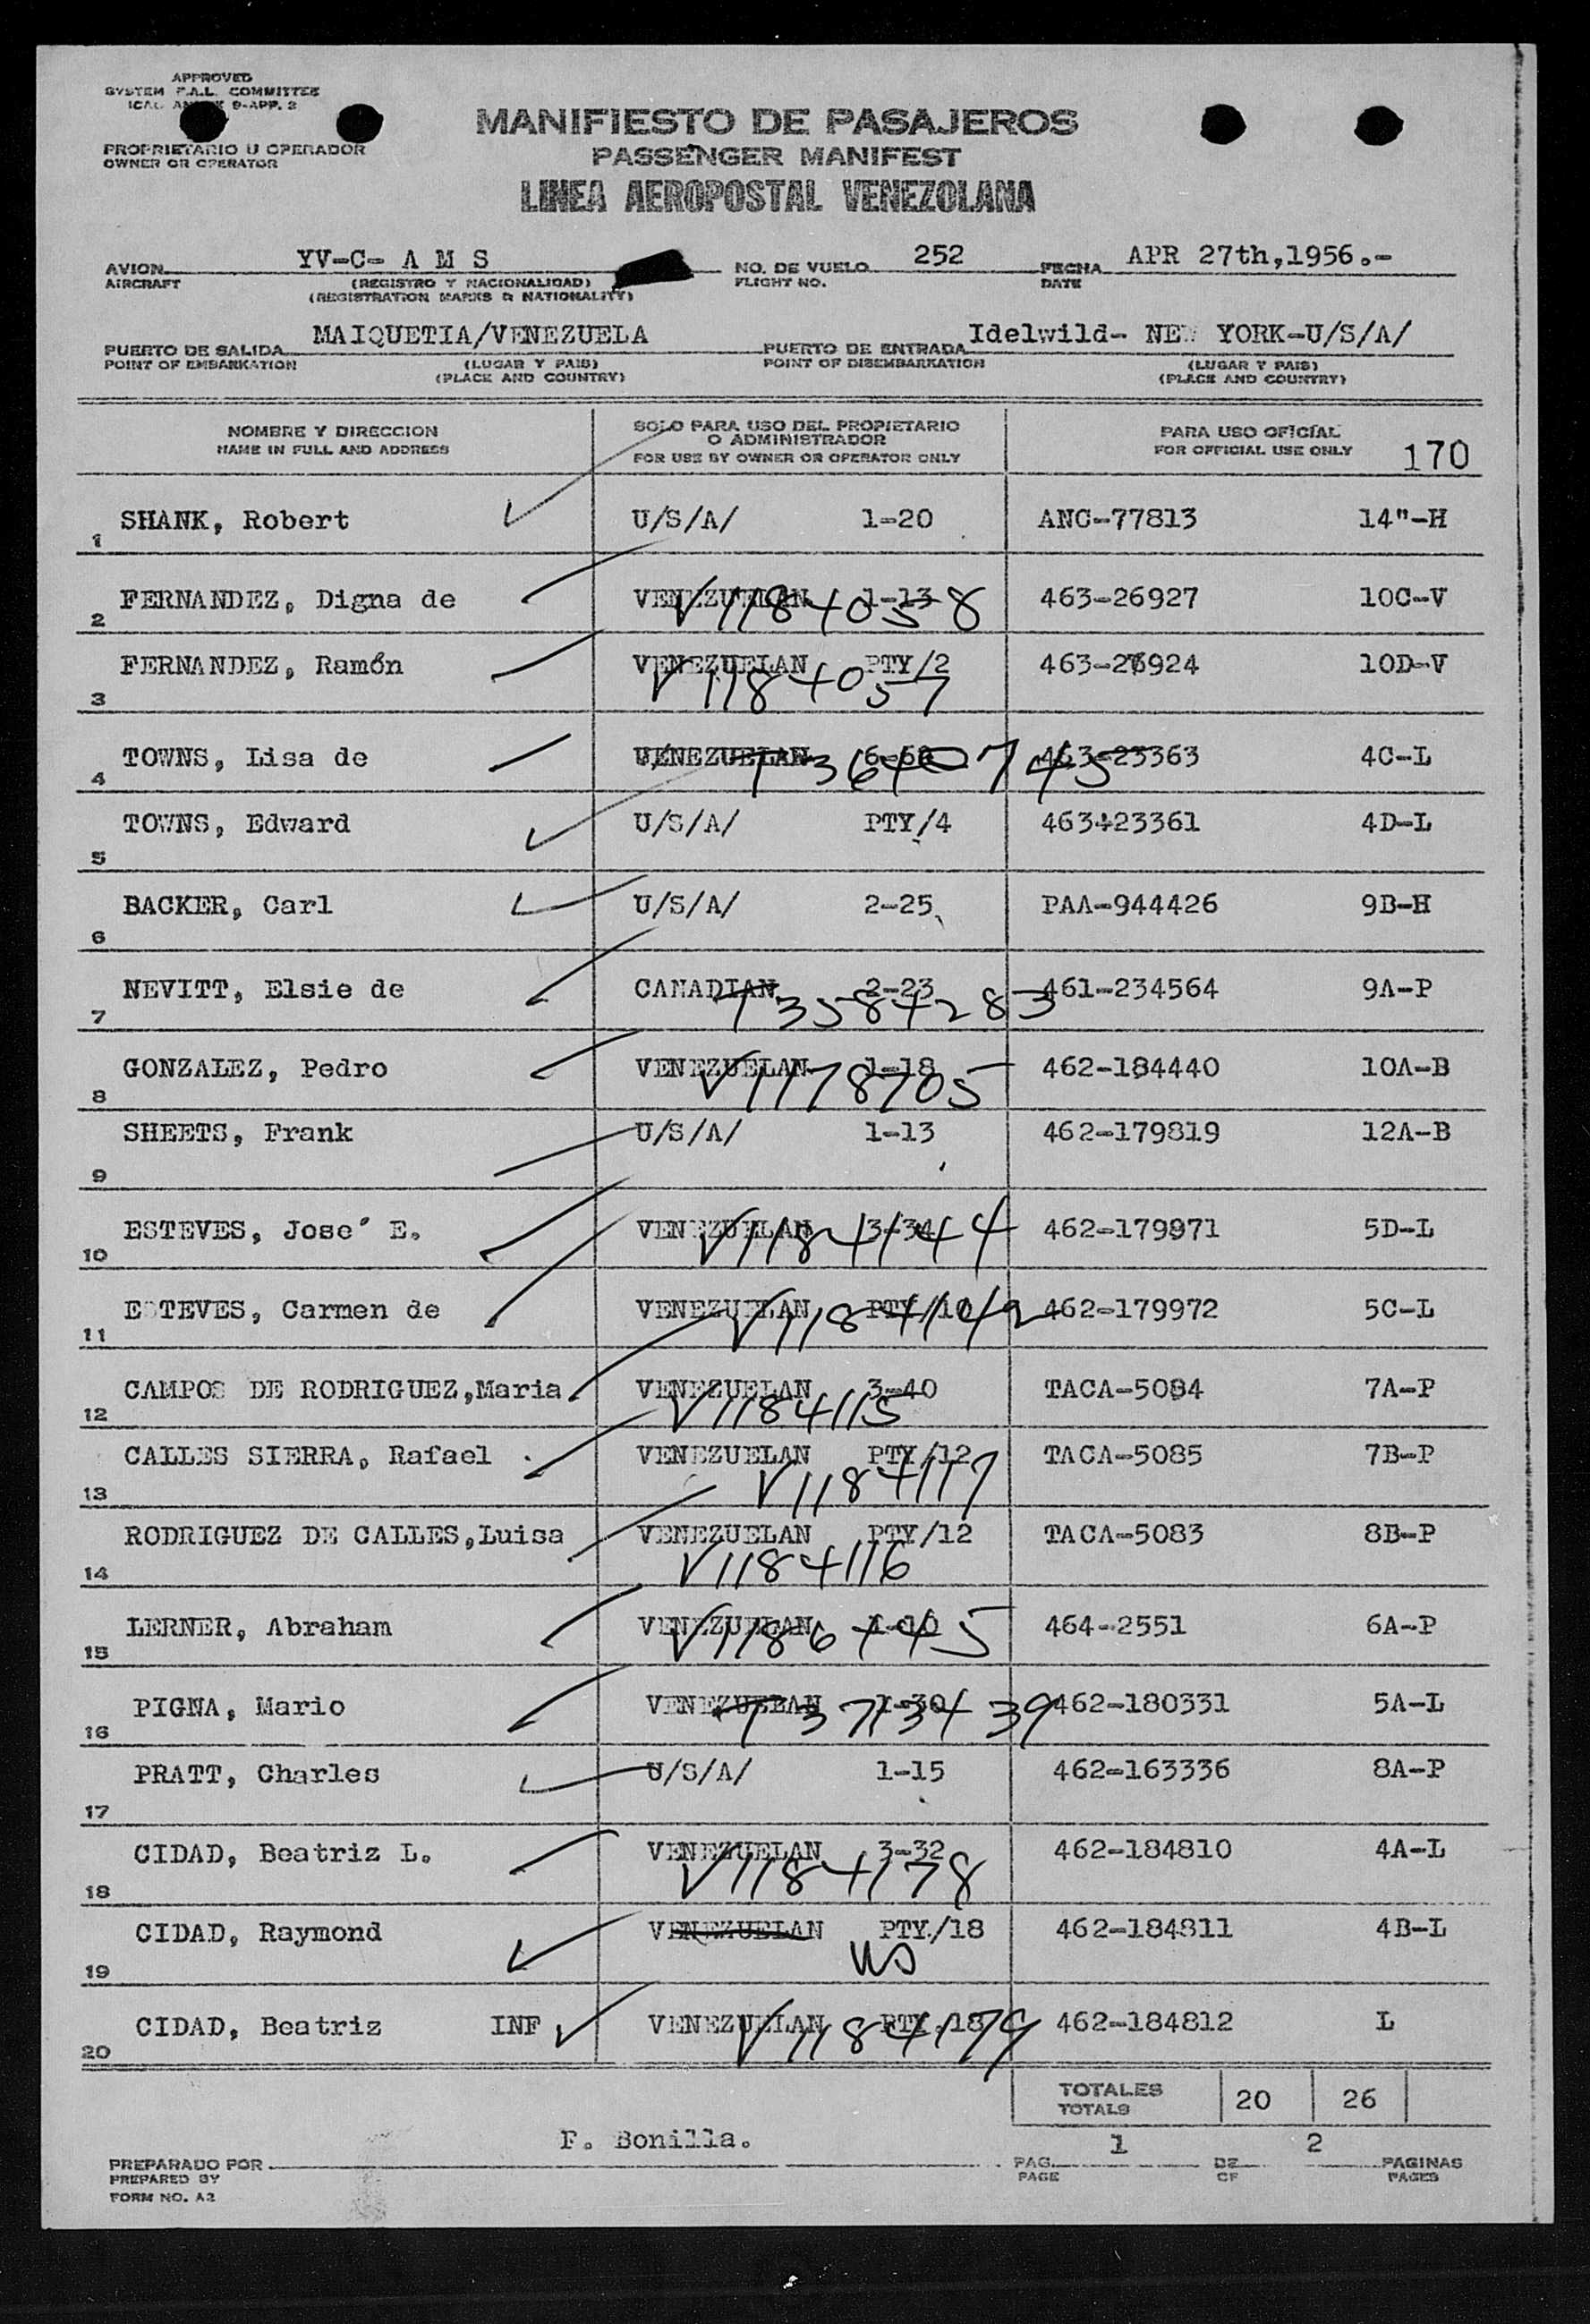 APPROVED
SYSTEM F.A.L. COMMITTEE
ICAO ANNEX 9-APP. 2
PROPRIETARIO U OPERADOR
OWNER OR OPERATOR
MANIFIESTO DE PASAJEROS
PASSENGER MANIFEST
LINEA AEROPOSTAL VENEZOLANA
AVION YV-C- A M S NO. DE VUELO 252 FECHA APR 27th,1956.-
AIRCRAFT (REGISTRO Y NACIONALIDAD) FLIGHT NO. DATE
(REGISTRATION MARKS & NATIONALITY)
PUERTO DE SALIDA MAIQUETIA/VENEZUELA PUERTO DE ENTRADA Idelwild- NEW YORK-U/S/A/
POINT OF EMBARKATION (LUGAR Y PAIS) POINT OF DISEMBARKATION (LUGAR Y PAIS)
(PLACE AND COUNTRY) (PLACE AND COUNTRY)
NOMBRE Y DIRECCION SOLO PARA USO DEL PROPIETARIO O ADMINISTRADOR PARA USO OFICIAL
NAME IN FULL AND ADDRESS FOR USE BY OWNER OR OPERATOR ONLY FOR OFFICIAL USE ONLY 170
1 SHANK, Robert U/S/A/ 1-20 ANC-77813 14"-H
2 FERNANDEZ, Digna de VENEZUELAN 1-13 463-26927 10C-V
V1184058
3 FERNANDEZ, Ramón VENEZUELAN PTY/2 463-26924 10D-V
V1184057
4 TOWNS, Lisa de VENEZUELAN 463-23363 4C-L
T3640745
5 TOWNS, Edward U/S/A/ PTY/4 463-23361 4D-L
6 BACKER, Carl U/S/A/ 2-25 PAA-944426 9B-H
7 NEVITT, Elsie de CANADIAN 2-23 461-234564 9A-P
T3584283
8 GONZALEZ, Pedro VENEZUELAN 1-18 462-184440 10A-B
V1178705
9 SHEETS, Frank U/S/A/ 1-13 462-179819 12A-B
10 ESTEVES, José E. VENEZUELAN 3-34 462-179971 5D-L
V1184144
11 ESTEVES, Carmen de VENEZUELAN PTY/10 462-179972 5C-L
V1184142
12 CAMPOS DE RODRIGUEZ,Maria VENEZUELAN 3-40 TACA-5084 7A-P
V1184115
13 CALLES SIERRA, Rafael VENEZUELAN PTY/12 TACA-5085 7B-P
V1184117
14 RODRIGUEZ DE CALLES,Luisa VENEZUELAN PTY/12 TACA-5083 8B-P
V1184116
15 LERNER, Abraham VENEZUELAN 464-2551 6A-P
V1186445
16 PIGNA, Mario VENEZUELAN 1-30 462-180331 5A-L
T3713439
17 PRATT, Charles U/S/A/ 1-15 462-163336 8A-P
18 CIDAD, Beatriz L. VENEZUELAN 3-32 462-184810 4A-L
V1184178
19 CIDAD, Raymond VENEZUELAN PTY./18 462-184811 4B-L
US
20 CIDAD, Beatriz INF VENEZUELAN PTY/18 462-184812 L
V1184179
TOTALES 20 26
TOTALS
F. Bonilla.
PREPARADO POR PAG. 1 DE 2 PAGINAS
PREPARED BY PAGE OF PAGES
FORM NO. A2